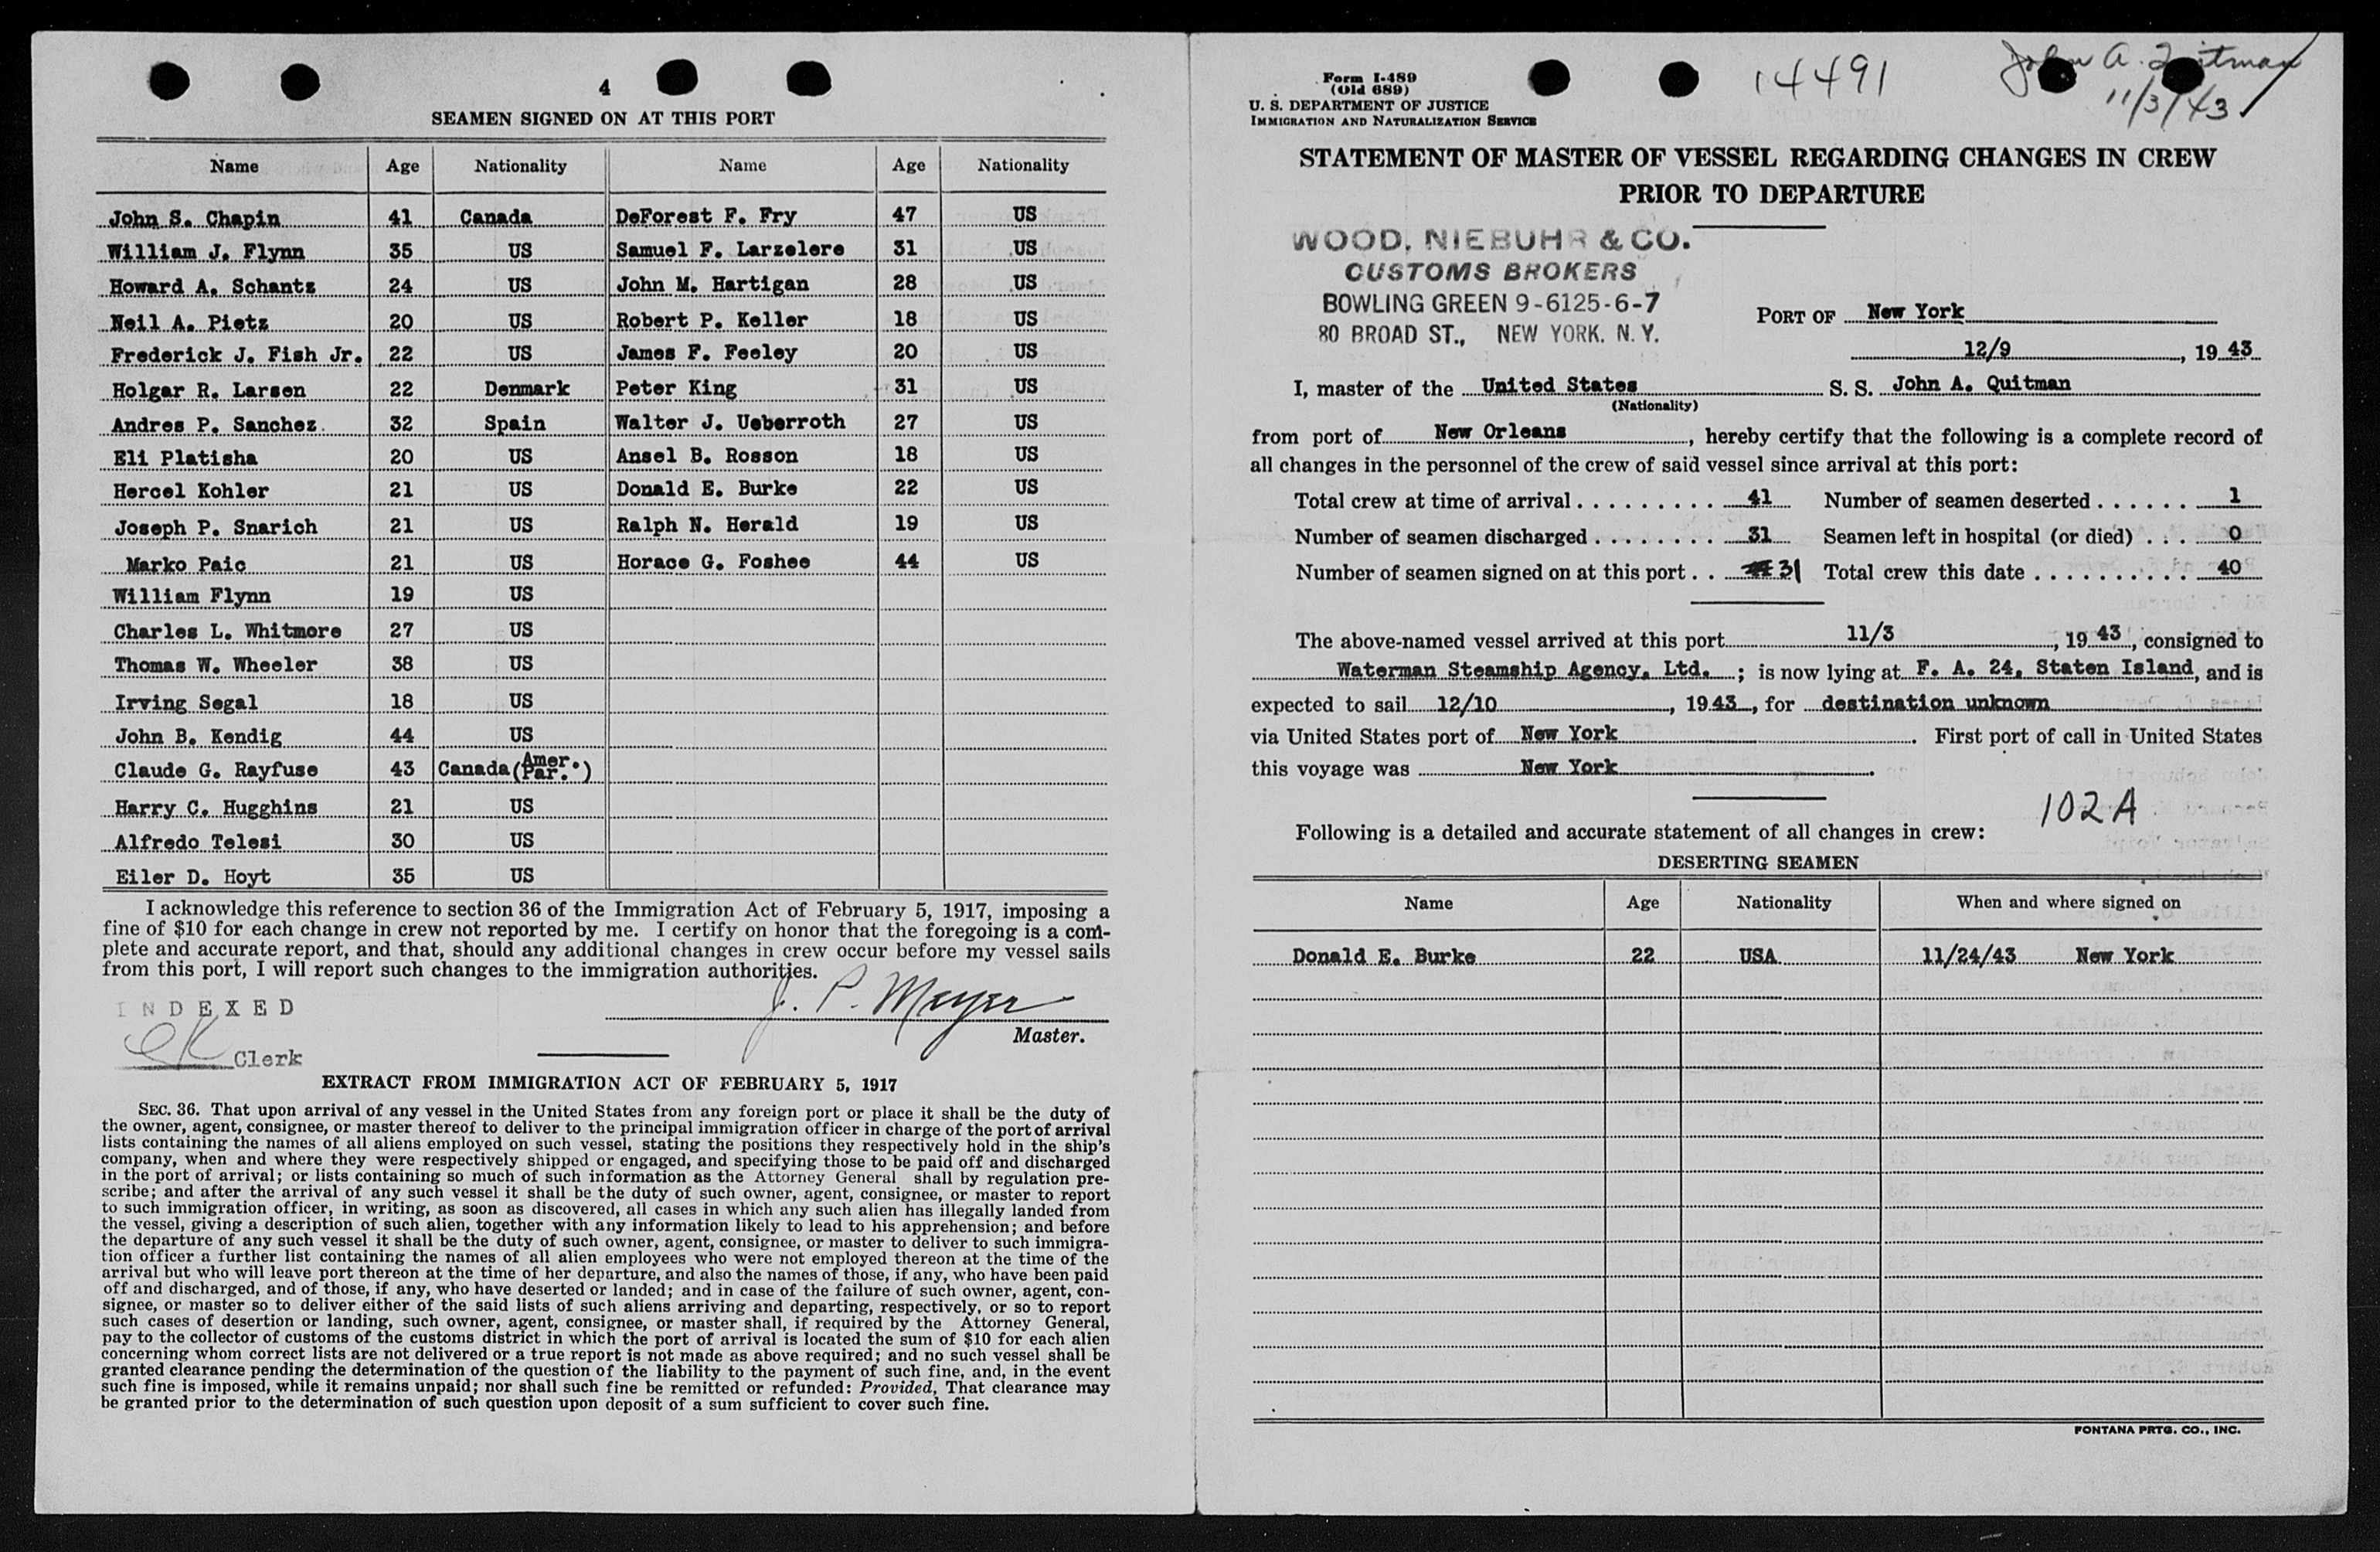 4
SEAMEN SIGNED ON AT THIS PORT
Name Age Nationality Name Age Nationality
John S. Chapin 41 Canada DeForest F. Fry 47 US
William J. Flynn 35 US Samuel F. Larzelere 31 US
Howard A. Schantz 24 US John M. Hartigan 28 US
Neil A. Pietz 20 US Robert P. Keller 18 US
Frederick J. Fish Jr. 22 US James F. Feeley 20 US
Holgar R. Larsen 22 Denmark Peter King 31 US
Andres P. Sanchez. 32 Spain Walter J. Ueberroth 27 US
Eli Platisha 20 US Ansel B. Rosson 18 US
Hercel Kohler 21 US Donald E. Burke 22 US
Joseph P. Snarich 21 US Ralph N. Herald 19 US
Marko Paic 21 US Horace G. Foshee 44 US
William Flynn 19 US
Charles L. Whitmore 27 US
Thomas W. Wheeler 38 US
Irving Segal 18 US
John B. Kendig 44 US
Claude G. Rayfuse 43 Canada (Amer. Par.)
Harry C. Hugghins 21 US
Alfredo Telesi 30 US
Eiler D. Hoyt 35 US
I acknowledge this reference to section 36 of the Immigration Act of February 5, 1917, imposing a
fine of $10 for each change in crew not reported by me. I certify on honor that the foregoing is a com-
plete and accurate report, and that, should any additional changes in crew occur before my vessel sails
from this port, I will report such changes to the immigration authorities.
J. P. Meyer
Master.
INDEXED
Clerk
EXTRACT FROM IMMIGRATION ACT OF FEBRUARY 5, 1917
SEC. 36. That upon arrival of any vessel in the United States from any foreign port or place it shall be the duty of
the owner, agent, consignee, or master thereof to deliver to the principal immigration officer in charge of the port of arrival
lists containing the names of all aliens employed on such vessel, stating the positions they respectively hold in the ship's
company, when and where they were respectively shipped or engaged, and specifying those to be paid off and discharged
in the port of arrival; or lists containing so much of such information as the Attorney General shall by regulation pre-
scribe; and after the arrival of any such vessel it shall be the duty of such owner, agent, consignee, or master to report
to such immigration officer, in writing, as soon as discovered, all cases in which any such alien has illegally landed from
the vessel, giving a description of such alien, together with any information likely to lead to his apprehension; and before
the departure of any such vessel it shall be the duty of such owner, agent, consignee, or master to deliver to such immigra-
tion officer a further list containing the names of all alien employees who were not employed thereon at the time of the
arrival but who will leave port thereon at the time of her departure, and also the names of those, if any, who have been paid
off and discharged, and of those, if any, who have deserted or landed; and in case of the failure of such owner, agent, con-
signee, or master so to deliver either of the said lists of such aliens arriving and departing, respectively, or so to report
such cases of desertion or landing, such owner, agent, consignee, or master shall, if required by the Attorney General,
pay to the collector of customs of the customs district in which the port of arrival is located the sum of $10 for each alien
concerning whom correct lists are not delivered or a true report is not made as above required; and no such vessel shall be
granted clearance pending the determination of the question of the liability to the payment of such fine, and, in the event
such fine is imposed, while it remains unpaid; nor shall such fine be remitted or refunded: Provided, That clearance may
be granted prior to the determination of such question upon deposit of a sum sufficient to cover such fine.
Form I-489
(Old 689)
U. S. DEPARTMENT OF JUSTICE
IMMIGRATION AND NATURALIZATION SERVICE
14491
John A. Quitman
11/3/43
STATEMENT OF MASTER OF VESSEL REGARDING CHANGES IN CREW
PRIOR TO DEPARTURE
WOOD, NIEBUHR & CO.
CUSTOMS BROKERS
BOWLING GREEN 9-6125-6-7
80 BROAD ST., NEW YORK, N. Y.
PORT OF New York
12/9, 1943
I, master of the United States S. S. John A. Quitman
(Nationality)
from port of New Orleans, hereby certify that the following is a complete record of
all changes in the personnel of the crew of said vessel since arrival at this port:
Total crew at time of arrival . . . . . . . . . 41 Number of seamen deserted . . . . . . 1
Number of seamen discharged . . . . . . . . 31 Seamen left in hospital (or died) . . . 0
Number of seamen signed on at this port . . 31 Total crew this date . . . . . . . . . . 40
The above-named vessel arrived at this port 11/3, 1943, consigned to
Waterman Steamship Agency, Ltd. ; is now lying at F. A. 24, Staten Island, and is
expected to sail 12/10, 1943, for destination unknown
via United States port of New York. First port of call in United States
this voyage was New York.
102A
Following is a detailed and accurate statement of all changes in crew:
DESERTING SEAMEN
Name Age Nationality When and where signed on
Donald E. Burke 22 USA 11/24/43 New York
FONTANA PRTG. CO., INC.